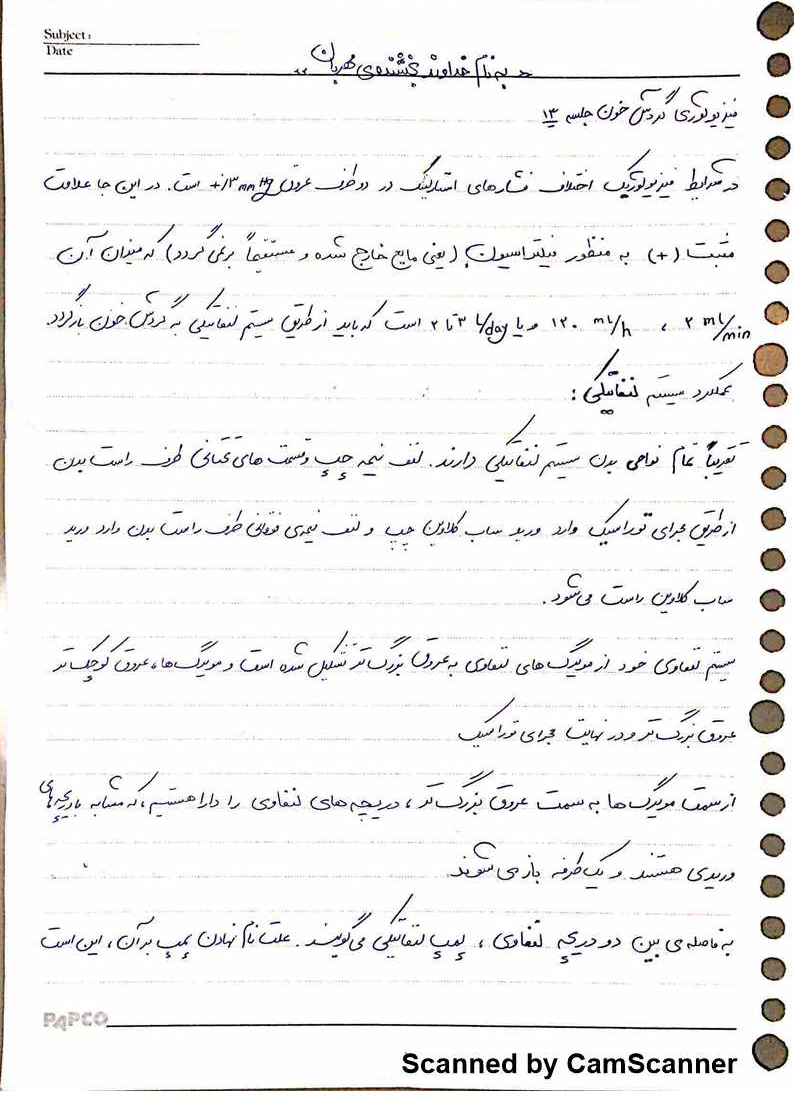 Subject:
Date
«به نام خداوند بخشنده‌ی مهربان»
فیزیولوژی گردش خون جلسه ۱۳
در شرایط فیزیولوژیک اختلاف فشارهای استارلینگ در دو طرف عروق +۰/۳ mmHg است. در این جا علامت
مثبت (+) به منظور فیلتراسیون (یعنی مایع خارج شده و مستقیماً برنمی‌گردد) که میزان آن
۲ ml/min ، ۱۲۰ ml/h و یا ۲ تا ۳ L/day است که باید از طریق سیستم لنفاتیکی به گردش خون بازگردد
عملکرد سیستم لنفاتیکی :
تقریباً تمام نواحی بدن سیستم لنفاتیکی دارند. لنف نیمه چپ و قسمت های تحتانی طرف راست بدن
از طریق مجرای توراسیک وارد ورید ساب کلاوین چپ و لنف نیمه‌ی فوقانی طرف راست بدن وارد ورید
ساب کلاوین راست می‌شود.
سیستم لنفاوی خود از مویرگ های لنفاوی به عروق بزرگ تر تشکیل شده است و مویرگ ها، عروق کوچک تر
عروق بزرگ تر و در نهایت مجرای توراسیک
از سمت مویرگ ها به سمت عروق بزرگ تر ، دریچه های لنفاوی را دارا هستیم، که مشابه با دریچه‌های
وریدی هستند و یک طرفه باز می شوند.
به فاصله‌ی بین دو دریچه لنفاوی ، پمپ لنفاتیکی می‌گویند. علت نام نهادن پمپ بر آن ، این است
PAPCO
Scanned by CamScanner